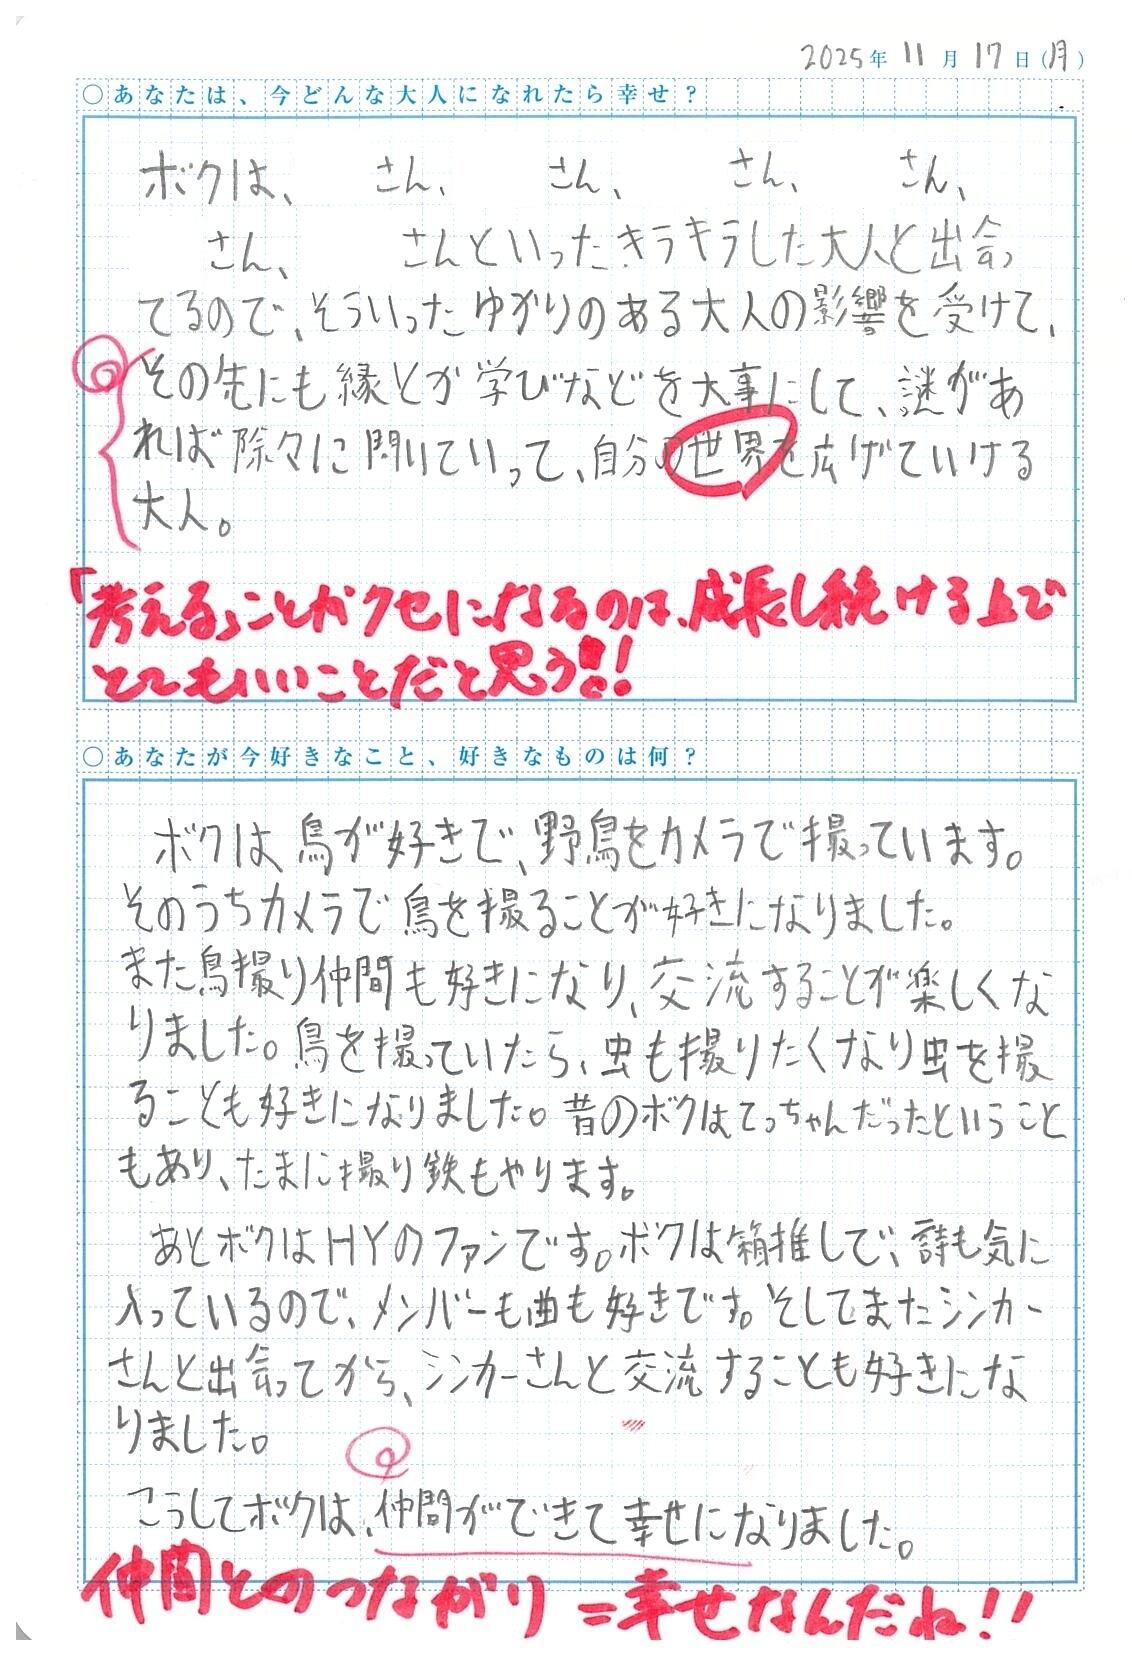 2025年11月17日(月)
○あなたは、今どんな大人になれたら幸せ?
ボクは、 さん、 さん、 さん、 さん、
さん、 さんといったキラキラした大人と出会っ
てるので、そういったゆかりのある大人の影響を受けて、
その先にも縁とか学びなどを大事にして、謎があ
れば除々に聞いていって、自分の世界を広げていける
大人。
「考える」ことがクセになるのは、成長し続ける上で
とてもいいことだと思う!!
○あなたが今好きなこと、好きなものは何?
ボクは、鳥が好きで、野鳥をカメラで撮っています。
そのうちカメラで鳥を撮ることが好きになりました。
また鳥撮り仲間も好きになり、交流することが楽しくな
りました。鳥を撮っていたら、虫も撮りたくなり虫を撮
ることも好きになりました。昔のボクはてっちゃんだったということ
もあり、たまに撮り鉄もやります。
あとボクはHYのファンです。ボクは箱推しで、詩も気に
入っているので、メンバーも曲も好きです。そしてまたシンカー
さんと出会ってから、シンカーさんと交流することも好きにな
りました。
こうしてボクは、仲間ができて幸せになりました。
仲間とのつながり=幸せなんだね!!